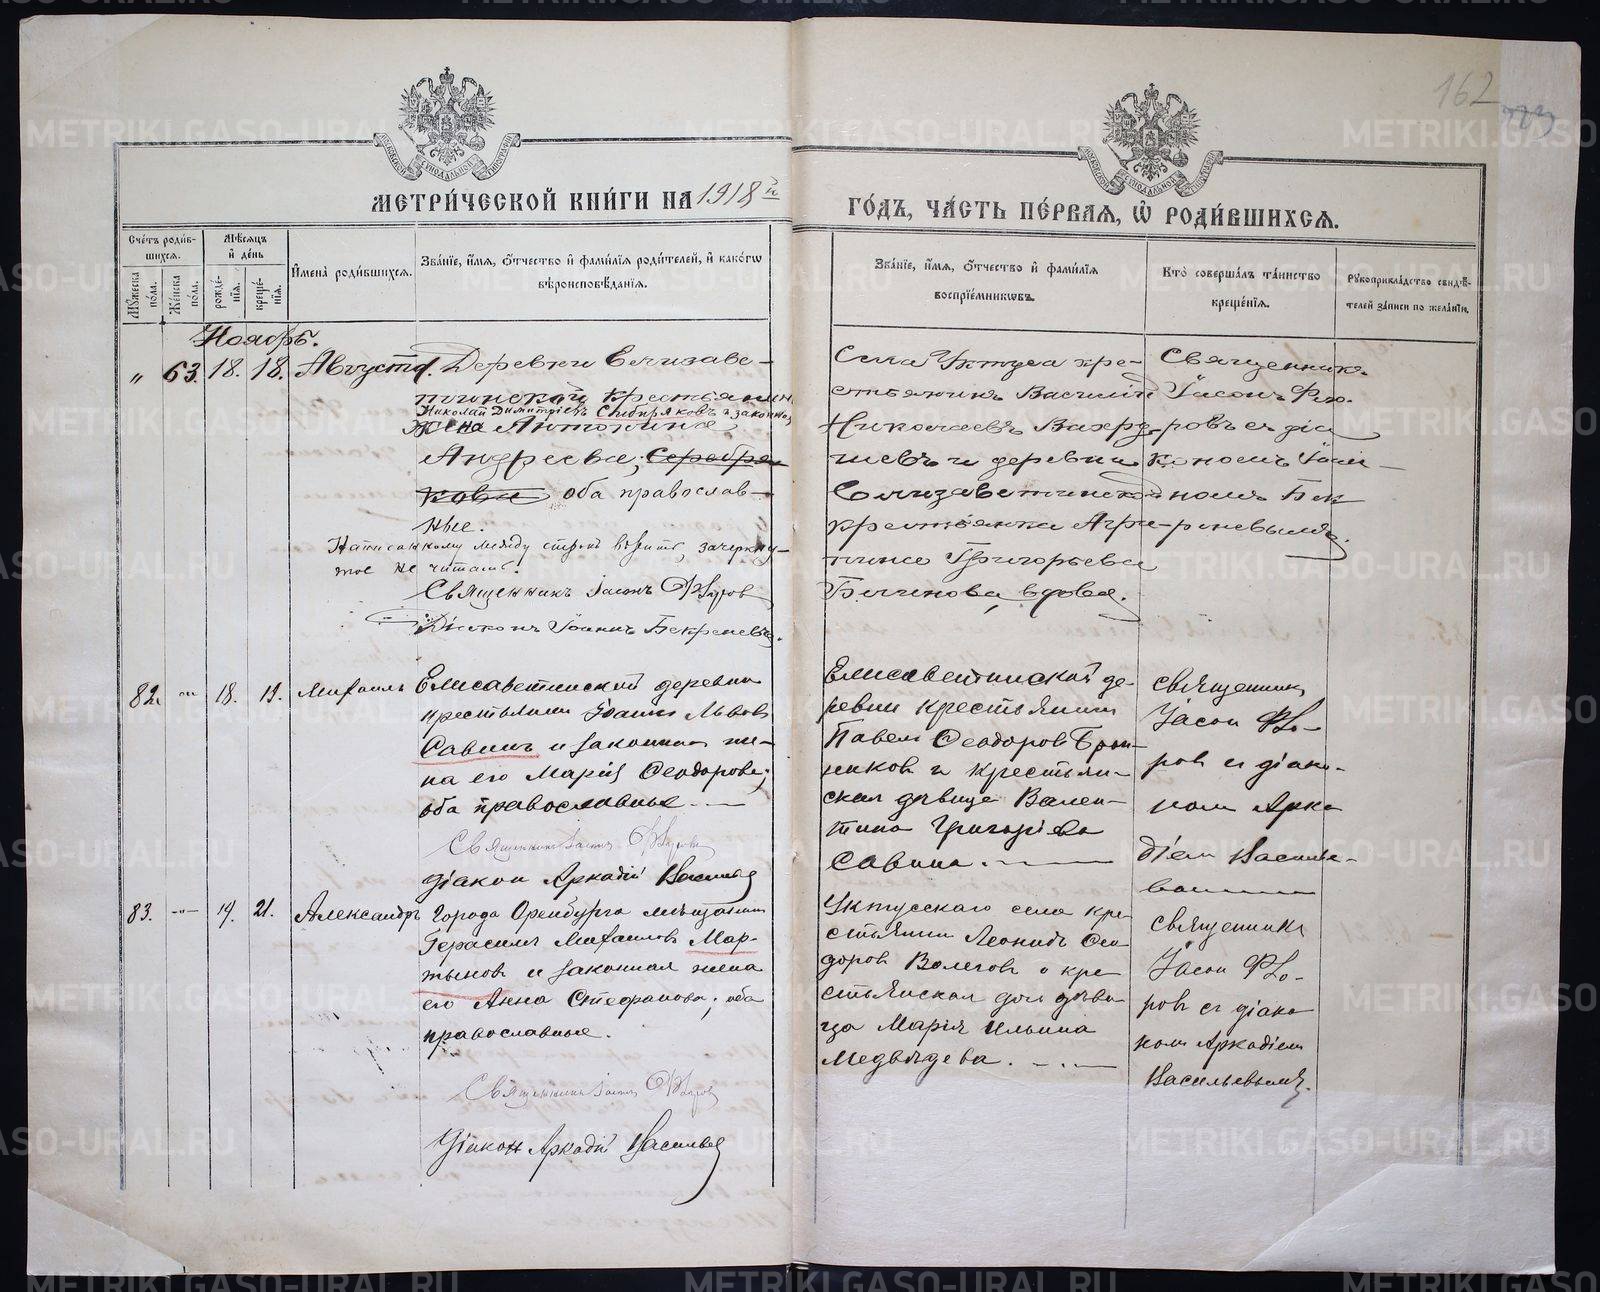 162
МЕТРИ́ЧЕСКОЙ КНИ́ГИ НА 1918 й
ГО́ДЪ, ЧА́СТЬ ПЕ́РВАЯ, Ѽ РОДИ́ВШИХСЯ.
Сче́тъ роди́в-
шихся.
Мꙋ́жеска по́ла.
Же́нска по́ла.
Мѣ́сяцъ
и҆ де́нь
рожде́-
нїя.
креще́-
нїя.
И҆мена̀ роди́вшихся.
Зва́нїе, и҆́мя, ѻ҆́тчество и҆ фами́лїя роди́телей, и҆ како́гѡ
вѣроисповѣ́данїя.
Зва́нїе, и҆́мя, ѻ҆́тчество и҆ фами́лїя
воспрїе́мникѡвъ.
Кто̀ соверша́лъ та́инство
креще́нїя.
Рꙋкоприкла́дство свидѣ́-
телей за́писи по жела́нїю.
Ноябрь.
„ 63. 18. 18. Августа.
Деревни Елизаве-
тинской крестьянин
Николай Димитріевъ Сибиряковъ и законная
жена Антонина
Андреева, Серебря-
кова оба православ-
ные.
Написанному между строкъ верить, зачеркну-
тое не читать.
Священникъ Іасонъ Флоров
Діаконъ Іоаннъ Бекреневъ.
Села Уктуса кре-
стьянинъ Василій
Николаевъ
и деревни
Елизаветинской
крестьянка Агри-
пина Григорьева
вдова.
Священникъ
Іасонъ Фло-
ровъ съ діа-
кономъ Іоан-
номъ Бек-
реневымъ.
82. -"- 18. 19. Михаилъ
Елисаветинской деревни
крестьянинъ Іоаннъ Львовъ
Савинъ и законная же-
на его Марія Ѳеодорова;
оба православные.
Священникъ Іасонъ Флоров
діакон Аркадій Васильев
Елисаветинской де-
ревни крестьянинъ
Павелъ Ѳеодоров Брон-
ников и крестьян-
ская девица Вален-
тина Григоріева
Савина.
священникъ
Іасон Фло-
ров съ діако-
ном Арка-
діем Василье-
вым
83. -"- 19. 21. Александръ
Города Оренбурга мещанин
Герасимъ Михаиловъ Мар-
тынов и законная жена
его Анна Стефанова; оба
православные.
Священникъ Іасонъ Флоров
Діакон Аркадій Васильев
Уктусскаго села кре-
стьянин Леонидъ Ѳео-
доров Волегов и кре-
стьянская дочь деви-
ца Марія Ильина
Медведева.
священникъ
Іасон Фло-
ров съ діако-
ном Аркадіем
Васильевымъ.